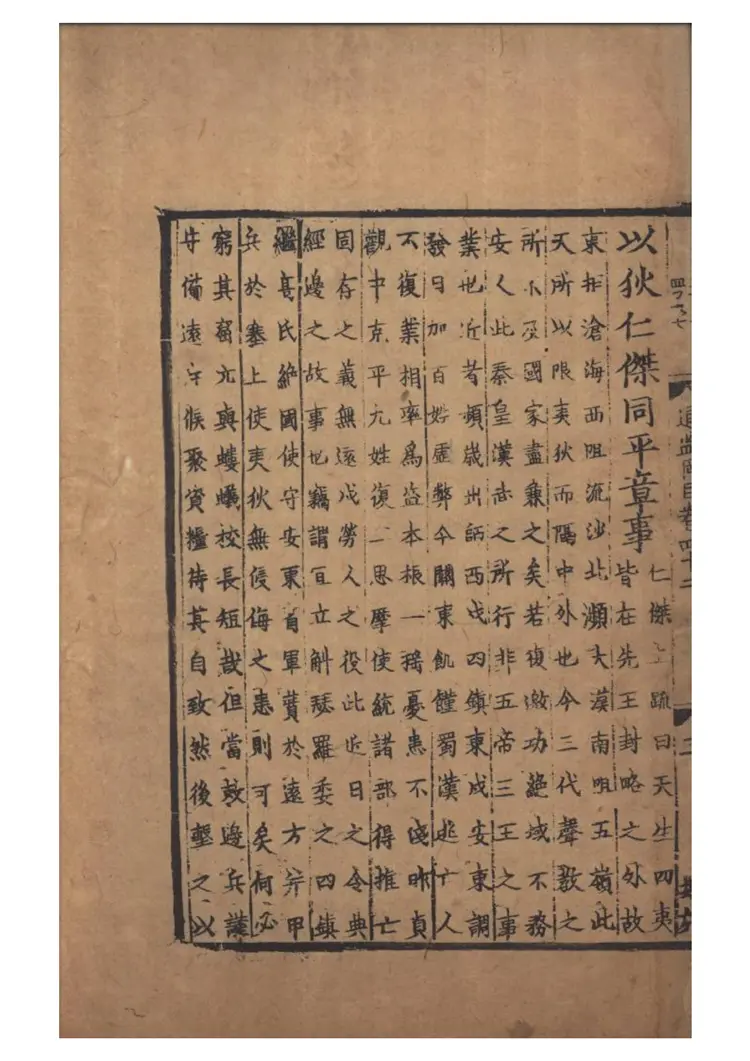 通鑑綱目卷四十二
以狄仁傑同平章事
仁傑上疏曰天生四夷
皆在先王封略之外故
東拒滄海西阻流沙北瀕大漠南阻五嶺此
天所以限夷狄而隔中外也今三代聲教之
所不及國家盡兼之矣若復邀功絶域不務
安人此秦皇漢武之所行非五帝三王之事
業也近者頻歲出師西戍四鎮東戍安東調
發日加百姓虛弊今關東飢饉蜀漢逃亡人
不復業相率爲盜本根一摇憂患不淺昨貞
觀中克平九姓復立思摩使統諸部得推亡
固存之義無遠戍勞人之役此近日之令典
經邊之故事也竊謂宜立斛瑟羅委之四鎮
繼高氏絶國使守安東省軍費於遠方并甲
兵於塞上使夷狄無侵侮之患則可矣何必
窮其窟穴與螻蟻校長短哉但當敕邊兵謹
守備遠斥候聚資糧待其自致然後擊之以